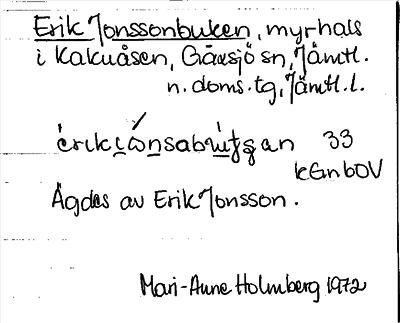 Erik Jonssonbuken, myrhals
i Kakuåsen, Gåxsjö sn, Jämtl.
n. doms. tg, Jämtl. l.
33
kGnbOV
Ägdes av Erik Jonsson.
Mari-Anne Holmberg 1972